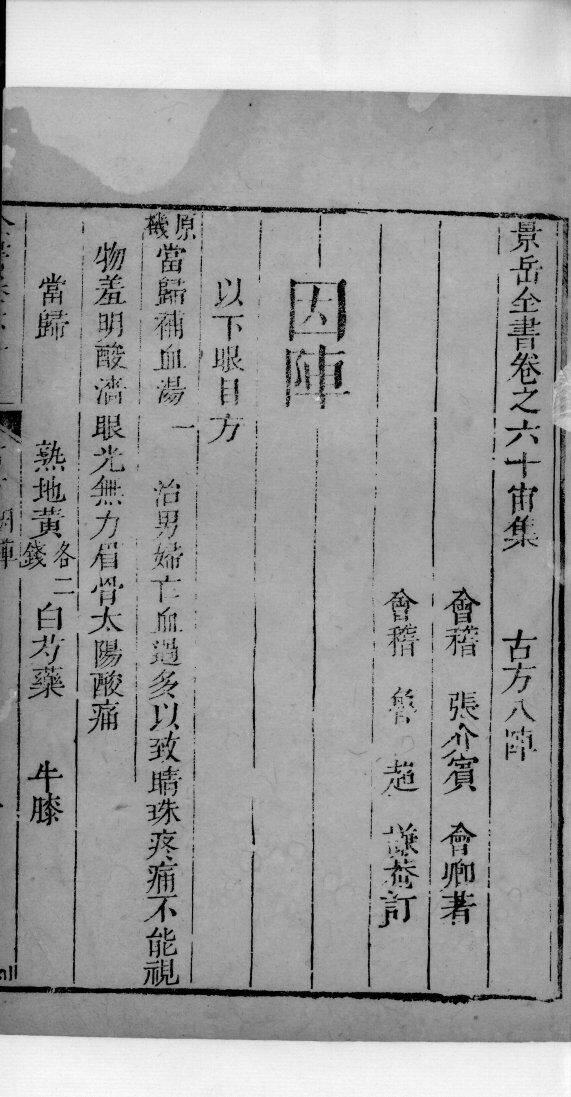 景岳全書卷之六十宙集　古方八陣
會稽　張介賓　會卿著
會稽　魯　超　謙菴訂
因陣
以下眼目方
原磯當歸補血湯一　治男婦亡血過多以致睛珠疼痛不能視
物羞明酸澀眼光無力眉骨太陽酸痛
當歸　熟地黃各二錢　白芍藥　牛膝